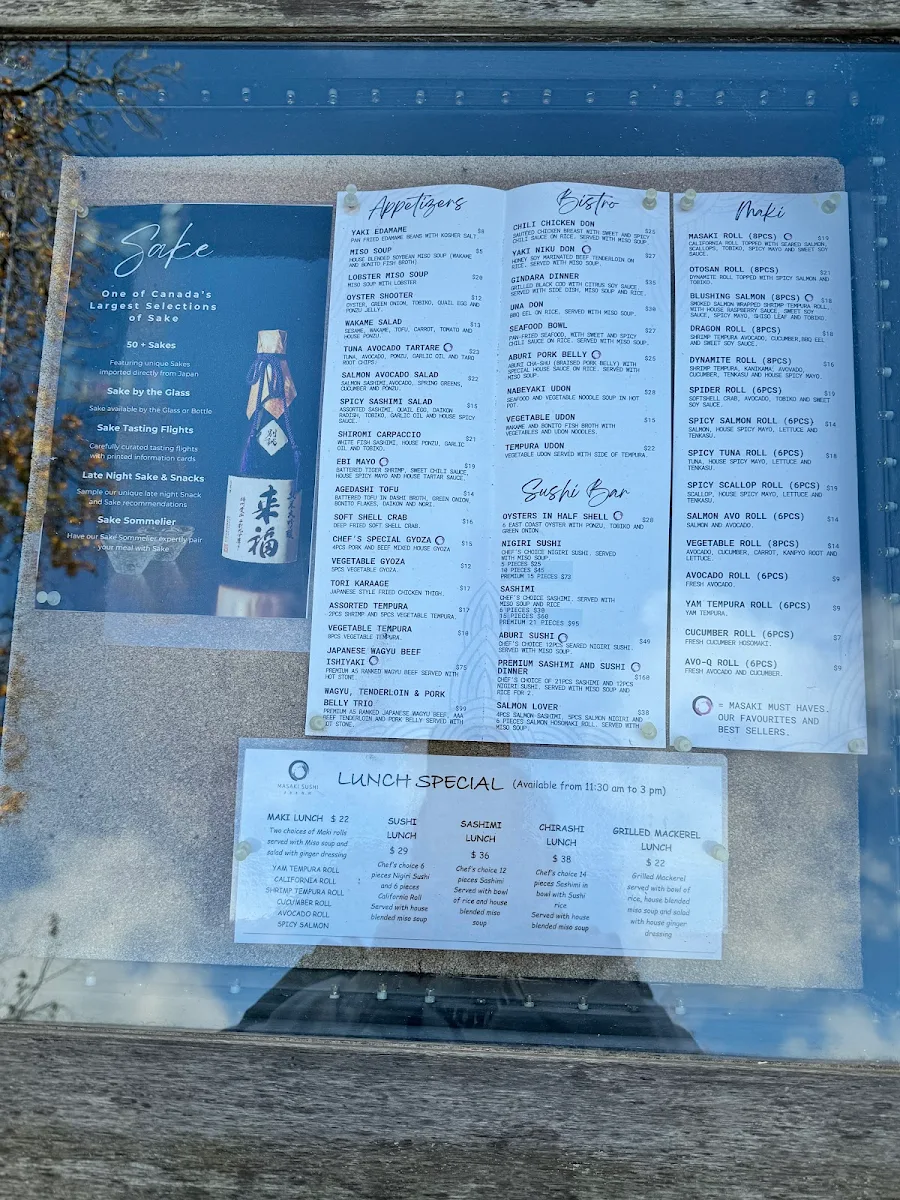 Sake
One of Canada's
Largest Selections
of Sake
50 + Sakes
Featuring unique Sakes
imported directly from Japan
Sake by the Glass
Sake available by the Glass or Bottle
Sake Tasting Flights
Carefully curated tasting flights
with printed information cards
Late Night Sake & Snacks
Sample our unique late night Snack
and Sake recommendations
Sake Sommelier
Have our Sake Sommelier expertly pair
your meal with Sake
来福
Appetizers
YAKI EDAMAME $6
PAN FRIED EDAMAME BEANS WITH KOSHER SALT
MISO SOUP $5
HOUSE BLENDED SOYBEAN MISO SOUP (WAKAME
AND BONITO FISH BROTH)
LOBSTER MISO SOUP $20
MISO SOUP WITH LOBSTER
OYSTER SHOOTER $12
OYSTER, GREEN ONION, TOBIKO, QUAIL EGG AND
PONZU JELLY.
WAKAME SALAD $13
SESAME, WAKAME, TOFU, CARROT, TOMATO AND
HOUSE PONZU.
TUNA AVOCADO TARTARE $23
TUNA, AVOCADO, PONZU, GARLIC OIL AND TARO
ROOT CHIPS.
SALMON AVOCADO SALAD $22
SALMON SASHIMI, AVOCADO, SPRING GREENS,
CUCUMBER AND PONZU.
SPICY SASHIMI SALAD $15
ASSORTED SASHIMI, QUAIL EGG, DAIKON
RADISH, TOBIKO, GARLIC OIL AND HOUSE SPICY
SAUCE.
SHIROMI CARPACCIO $21
WHITE FISH SASHIMI, HOUSE PONZU, GARLIC
OIL AND TOBIKO.
EBI MAYO $19
BATTERED TIGER SHRIMP, SWEET CHILI SAUCE,
HOUSE SPICY MAYO AND HOUSE TARTAR SAUCE.
AGEDASHI TOFU $14
BATTERED TOFU IN DASHI BROTH, GREEN ONION,
BONITO FLAKES, DAIKON AND NORI.
SOFT SHELL CRAB $16
DEEP FRIED SOFT SHELL CRAB.
CHEF'S SPECIAL GYOZA $15
4PCS PORK AND BEEF MIXED HOUSE GYOZA
VEGETABLE GYOZA $12
5PCS VEGETABLE GYOZA.
TORI KARAAGE $17
JAPANESE STYLE FRIED CHICKEN THIGH.
ASSORTED TEMPURA $17
2PCS SHRIMP AND 5PCS VEGETABLE TEMPURA.
VEGETABLE TEMPURA $10
8PCS VEGETABLE TEMPURA.
JAPANESE WAGYU BEEF
ISHIYAKI $75
PREMIUM A5 RANKED WAGYU BEEF SERVED WITH
HOT STONE.
WAGYU, TENDERLOIN & PORK
BELLY TRIO $99
PREMIUM A5 RANKED JAPANESE WAGYU BEEF, AAA
BEEF TENDERLOIN AND PORK BELLY SERVED WITH
HOT STONE.
Bistro
CHILI CHICKEN DON $25
SAUTEED CHICKEN BREAST WITH SWEET AND SPICY
CHILI SAUCE ON RICE. SERVED WITH MISO SOUP.
YAKI NIKU DON $27
HONEY SOY MARINATED BEEF TENDERLOIN ON
RICE, SERVED WITH MISO SOUP.
GINDARA DINNER $35
GRILLED BLACK COD WITH CITRUS SOY SAUCE.
SERVED WITH SIDE DISH, MISO SOUP AND RICE.
UNA DON $30
BBQ EEL ON RICE, SERVED WITH MISO SOUP.
SEAFOOD BOWL $27
PAN-FRIED SEAFOOD, WITH SWEET AND SPICY
CHILI SAUCE ON RICE. SERVED WITH MISO SOUP.
ABURI PORK BELLY $25
ABURI CHA-SHU (BRAISED PORK BELLY) WITH
SPECIAL HOUSE SAUCE ON RICE. SERVED WITH
MISO SOUP.
NABEYAKI UDON $28
SEAFOOD AND VEGETABLE NOODLE SOUP IN HOT
POT.
VEGETABLE UDON $15
WAKAME AND BONITO FISH BROTH WITH
VEGETABLES AND UDON NOODLES.
TEMPURA UDON $22
VEGETABLE UDON SERVED WITH SIDE OF TEMPURA.
Sushi Bar
OYSTERS IN HALF SHELL $20
6 EAST COAST OYSTER WITH PONZU, TOBIKO AND
GREEN ONION.
NIGIRI SUSHI
CHEF'S CHOICE NIGIRI SUSHI. SERVED
WITH MISO SOUP
5 PIECES $25
10 PIECES $45
PREMIUM 15 PIECES $73
SASHIMI
CHEF'S CHOICE SASHIMI. SERVED WITH
MISO SOUP AND RICE
6 PIECES $30
15 PIECES $60
PREMIUM 21 PIECES $95
ABURI SUSHI $49
CHEF'S CHOICE 12PCS SEARED NIGIRI SUSHI.
SERVED WITH MISO SOUP.
PREMIUM SASHIMI AND SUSHI
DINNER $160
CHEF'S CHOICE OF 21PCS SASHIMI AND 12PCS
NIGIRI SUSHI. SERVED WITH MISO SOUP AND
RICE FOR 2.
SALMON LOVER $39
4PCS SALMON SASHIMI, 5PCS SALMON NIGIRI AND
6 PIECES SALMON HOSOMAKI ROLL. SERVED WITH
MISO SOUP.
Maki
MASAKI ROLL (8PCS) $19
CALIFORNIA ROLL TOPPED WITH SEARED SALMON,
SCALLOPS, TOBIKO, SPICY MAYO AND SWEET SOY
SAUCE.
OTOSAN ROLL (8PCS) $21
DYNAMITE ROLL TOPPED WITH SPICY SALMON AND
TOBIKO.
BLUSHING SALMON (8PCS) $18
SMOKED SALMON WRAPPED SHRIMP TEMPURA ROLL,
WITH HOUSE RASPBERRY SAUCE, SWEET SOY
SAUCE, SPICY MAYO, SHISO LEAF AND TOBIKO.
DRAGON ROLL (8PCS) $18
SHRIMP TEMPURA AVOCADO, CUCUMBER, BBQ EEL
AND SWEET SOY SAUCE.
DYNAMITE ROLL (8PCS) $16
SHRIMP TEMPURA, KANIKAMA, AVOVADO,
CUCUMBER, TENKASU AND HOUSE SPICY MAYO.
SPIDER ROLL (6PCS) $19
SOFTSHELL CRAB, AVOCADO, TOBIKO AND SWEET
SOY SAUCE.
SPICY SALMON ROLL (6PCS) $14
SALMON, HOUSE SPICY MAYO, LETTUCE AND
TENKASU.
SPICY TUNA ROLL (6PCS) $18
TUNA, HOUSE SPICY MAYO, LETTUCE AND
TENKASU.
SPICY SCALLOP ROLL (6PCS) $19
SCALLOP, HOUSE SPICY MAYO, LETTUCE AND
TENKASU.
SALMON AVO ROLL (6PCS) $14
SALMON AND AVOCADO.
VEGETABLE ROLL (8PCS) $14
AVOCADO, CUCUMBER, CARROT, KANPYO ROOT AND
LETTUCE.
AVOCADO ROLL (6PCS) $9
FRESH AVOCADO.
YAM TEMPURA ROLL (6PCS) $9
YAM TEMPURA.
CUCUMBER ROLL (6PCS) $7
FRESH CUCUMBER HOSOMAKI.
AVO-Q ROLL (6PCS) $9
FRESH AVOCADO AND CUCUMBER.
= MASAKI MUST HAVES.
OUR FAVOURITES AND
BEST SELLERS.
MASAKI SUSHI
LUNCH SPECIAL (Available from 11:30 am to 3 pm)
MAKI LUNCH $ 22
Two choices of Maki rolls
served with Miso soup and
salad with ginger dressing
YAM TEMPURA ROLL
CALIFORNIA ROLL
SHRIMP TEMPURA ROLL
CUCUMBER ROLL
AVOCADO ROLL
SPICY SALMON
SUSHI
LUNCH
$ 29
Chef's choice 6
pieces Nigiri Sushi
and 6 pieces
California Roll
Served with house
blended miso soup
SASHIMI
LUNCH
$ 36
Chef's choice 12
pieces Sashimi
Served with bowl
of rice and house
blended miso
soup
CHIRASHI
LUNCH
$ 38
Chef's choice 14
pieces Sashimi in
bowl with Sushi
rice
Served with house
blended miso soup
GRILLED MACKEREL
LUNCH
$ 22
Grilled Mackerel
served with bowl of
rice, house blended
miso soup and salad
with house ginger
dressing